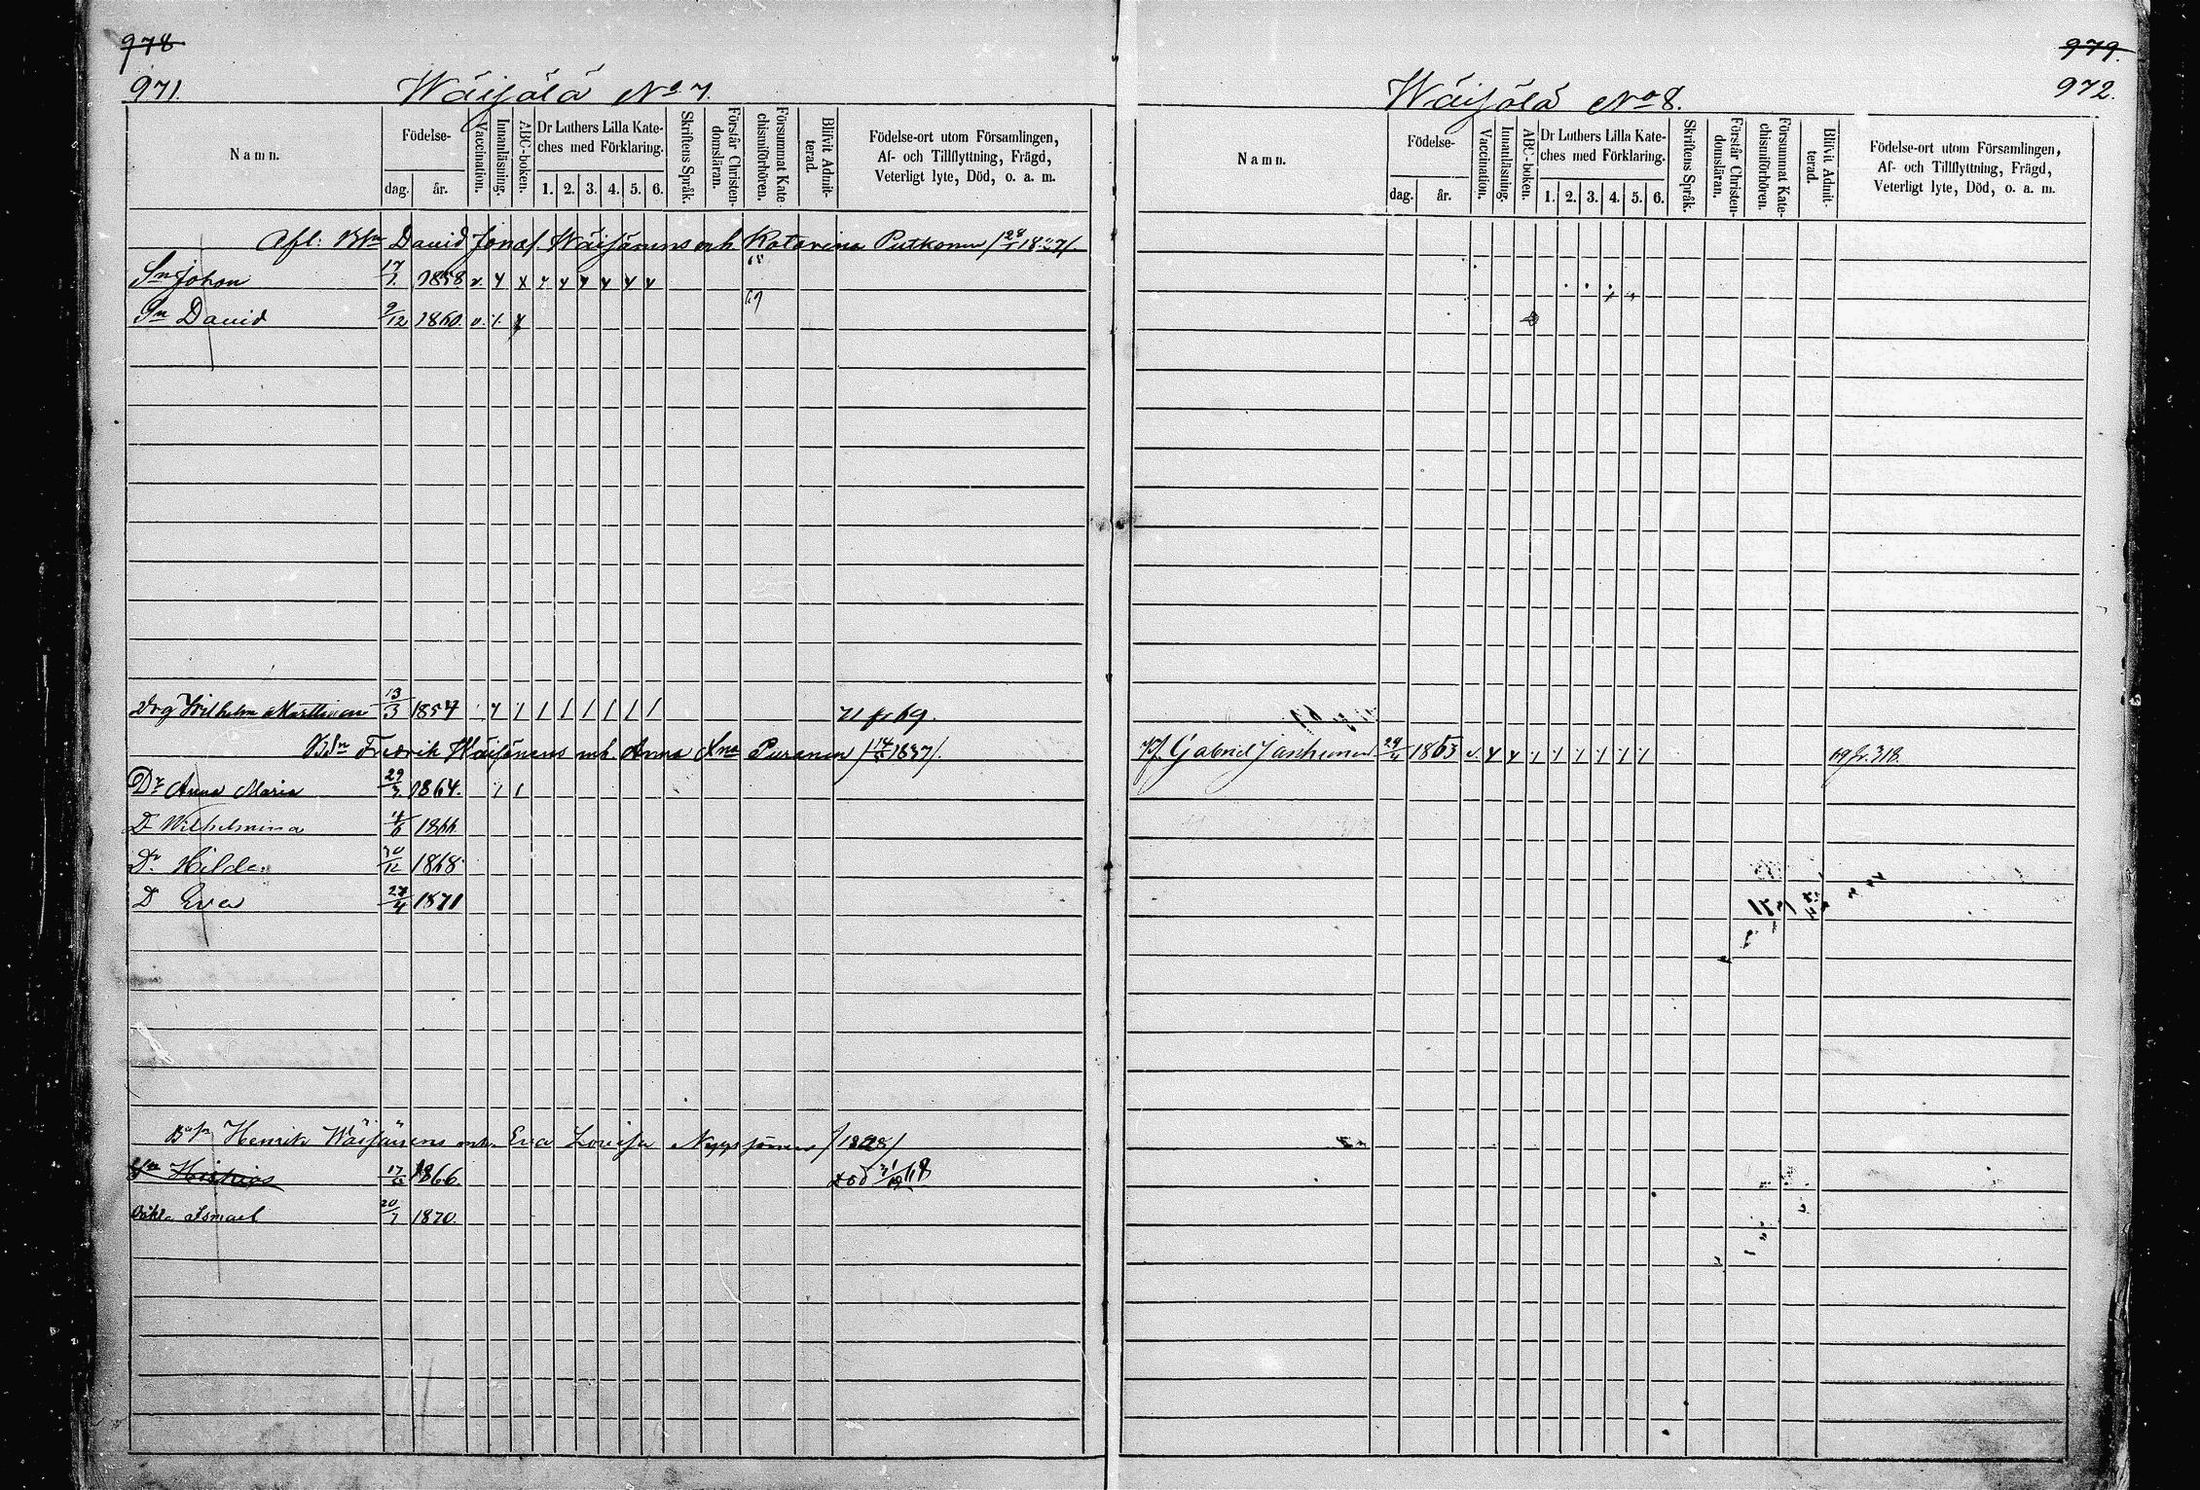 978
971.
Wäisälä No 7.
Namn.
Födelse-
dag.
år.
Vaccination.
Innanläsning.
ABC-boken.
Dr Luthers Lilla Kate-
ches med Förklaring.
1. 2. 3. 4. 5. 6.
Skriftens Språk.
Förstår Christen-
domsläran.
Försummat Kate-
chismiförhören.
Blifvit Admit-
terad.
Födelse-ort utom Församlingen,
Af- och Tillflyttning, Frägd,
Veterligt lyte, Död, o. a. m.
Afl: David Jonas Wäisänens enk Katarina Putkonen
Sn Johan 17/7 1858
69
Sn David 9/12 1860.
Drg Wilhelm Marttinen 13/3 1857 71 fr 69.
Fredrik Wäisänens Anna Puranen /1837/.
Dr Anna Maria 29/3 1864.
D Wilhelmina 1866
Dr Hilda 30/12 1868
D Eva 27/4 1871
Henrik Wäisänens Eva Lovisa /1828/
1866 död
Ismael 20/7 1870.
979.
972.
Wäisälä No 8.
Namn.
Födelse-
dag.
år.
Vaccination.
Innanläsning.
ABC-boken.
Dr Luthers Lilla Kate-
ches med Förklaring.
1. 2. 3. 4. 5. 6.
Skriftens Språk.
Förstår Christen-
domsläran.
Försummat Kate-
chismiförhören.
Blifvit Admit-
terad.
Födelse-ort utom Församlingen,
Af- och Tillflyttning, Frägd,
Veterligt lyte, Död, o. a. m.
Gabriel 29/4 1863 69 fr. 318.